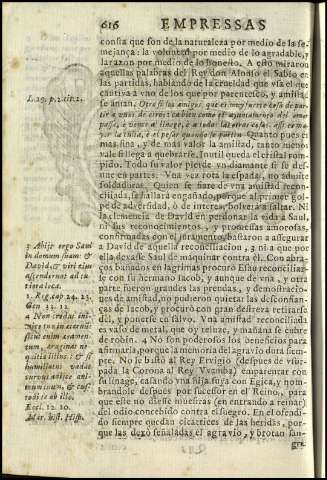 616 EMPRESSAS
confia que son de la naturaleza por medio de la se-
mejança: la voluntad por medio de lo agradable, y
la razon por medio de lo honesto. A esto miraron
aquellas palabras del Rey don Alonso el Sabio en
las partidas, hablando de la crueldad que vía el que
cautiva a vno de los que por parentesco, y amistad
se aman. Otrosi los amigos, que es muy fuerte cosa de par-
tir a vnos de otros: ca bien como el ayuntamiento del amor
passa, è vence al linage, è a todas las otras cosas: assi es ma-
yor la cuita, è el pesar quando se parten. Quanto pues es
mas fina, y de mas valor la amistad, tanto menos
vale si llega a quebrarse. Inutil queda el cristal rom-
pido. Todo su valor pierde vn diamante si se des-
une en partes. Vna vez rota la espada, no admite
soldaduras. Quien se fiare de vna amistad recon-
ciliada, se hallará engañado, porque al primer gol-
pe de adversidad, ò de interes, bolverá a faltar. Ni
la clemencia de David en perdonar la vida a Saul,
ni sus reconocimientos, y promesas amorosas,
confirmadas con el juramento, bastaron a assegurar
a David de aquella reconciliacion, 3 ni a que por
ella dexasse Saul de maquinar contra él. Con abra-
ços bañados en lagrimas procurò Esau reconciliar-
se con su hermano Iacob, y aunque de vna, y otra
parte fueron grandes las prendas, y demonstracio-
nes de amistad, no pudieron quietar las desconfian-
ças de Iacob, y procurò con gran destreza retirarse
dél, y ponerse en salvo. Vna amistad reconciliada
es vaso de metal, que oy reluze, y mañana se cubre
de robin. 4 No son poderosos los beneficios para
afirmarla, porque la memoria del agravio dura siem-
pre. No le bastò al Rey Ervigio (despues de vsur-
pada la Corona al Rey Vvamba) emparentar con
su linage, casando vna hija suya con Egica, y nom-
brandole despues por sucessor en el Reino, para
que este no diesse muestras (en entrando a reinar)
del odio concebido contra el suegro. En el ofendi-
do siempre quedan cicatrices de las heridas, por-
que las dexò señaladas el agravio, y brotan san-
gre
L. 19. p. 2. tit. 2.
3 Abijt ergo Saul
in domum suam: &
David, & viri eius
ascenderunt ad tu-
tiora loca.
1. Reg. cap. 24. 23.
Gen. 33. 12.
4 Non credas ini-
mico tuo in aeternũ:
sicut enim aeramen-
tum, aeruginat ne-
quitia illius: & si
humiliatus vadat
curvus adiice ani-
mum tuum, & cus-
todi te ab illo.
Eccl. 12. 10.
Mar. hist. Hisp.